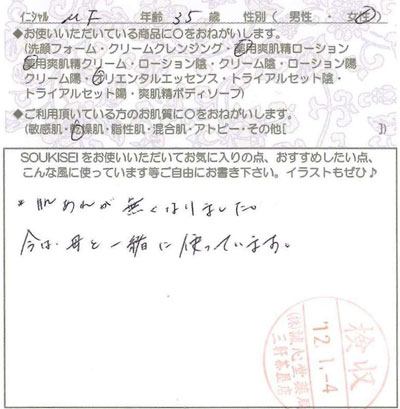 イニシャル MF 年齢 35 歳 性別(男性・女性)
◆お使いいただいている商品に○をおねがいします。
(洗顔フォーム・クリームクレンジング・薬用爽肌精ローション
薬用爽肌精クリーム・ローション陰・クリーム陰・ローション陽
クリーム陽・オリエンタルエッセンス・トライアルセット陰・
トライアルセット陽・爽肌精ボディソープ)
◆ご利用頂いている方のお肌質に○をおねがいします。
(敏感肌・乾燥肌・脂性肌・混合肌・アトピー・その他[ ])
SOUKISEIをお使いいただいてお気に入りの点、おすすめしたい点、
こんな風に使っています等ご自由にお書き下さい。イラストもぜひ♪
*肌あれが無くなりました。
今は、母と一緒に使っています。
検収
'12.1.-4
㈲誠心堂薬局
三軒茶屋店